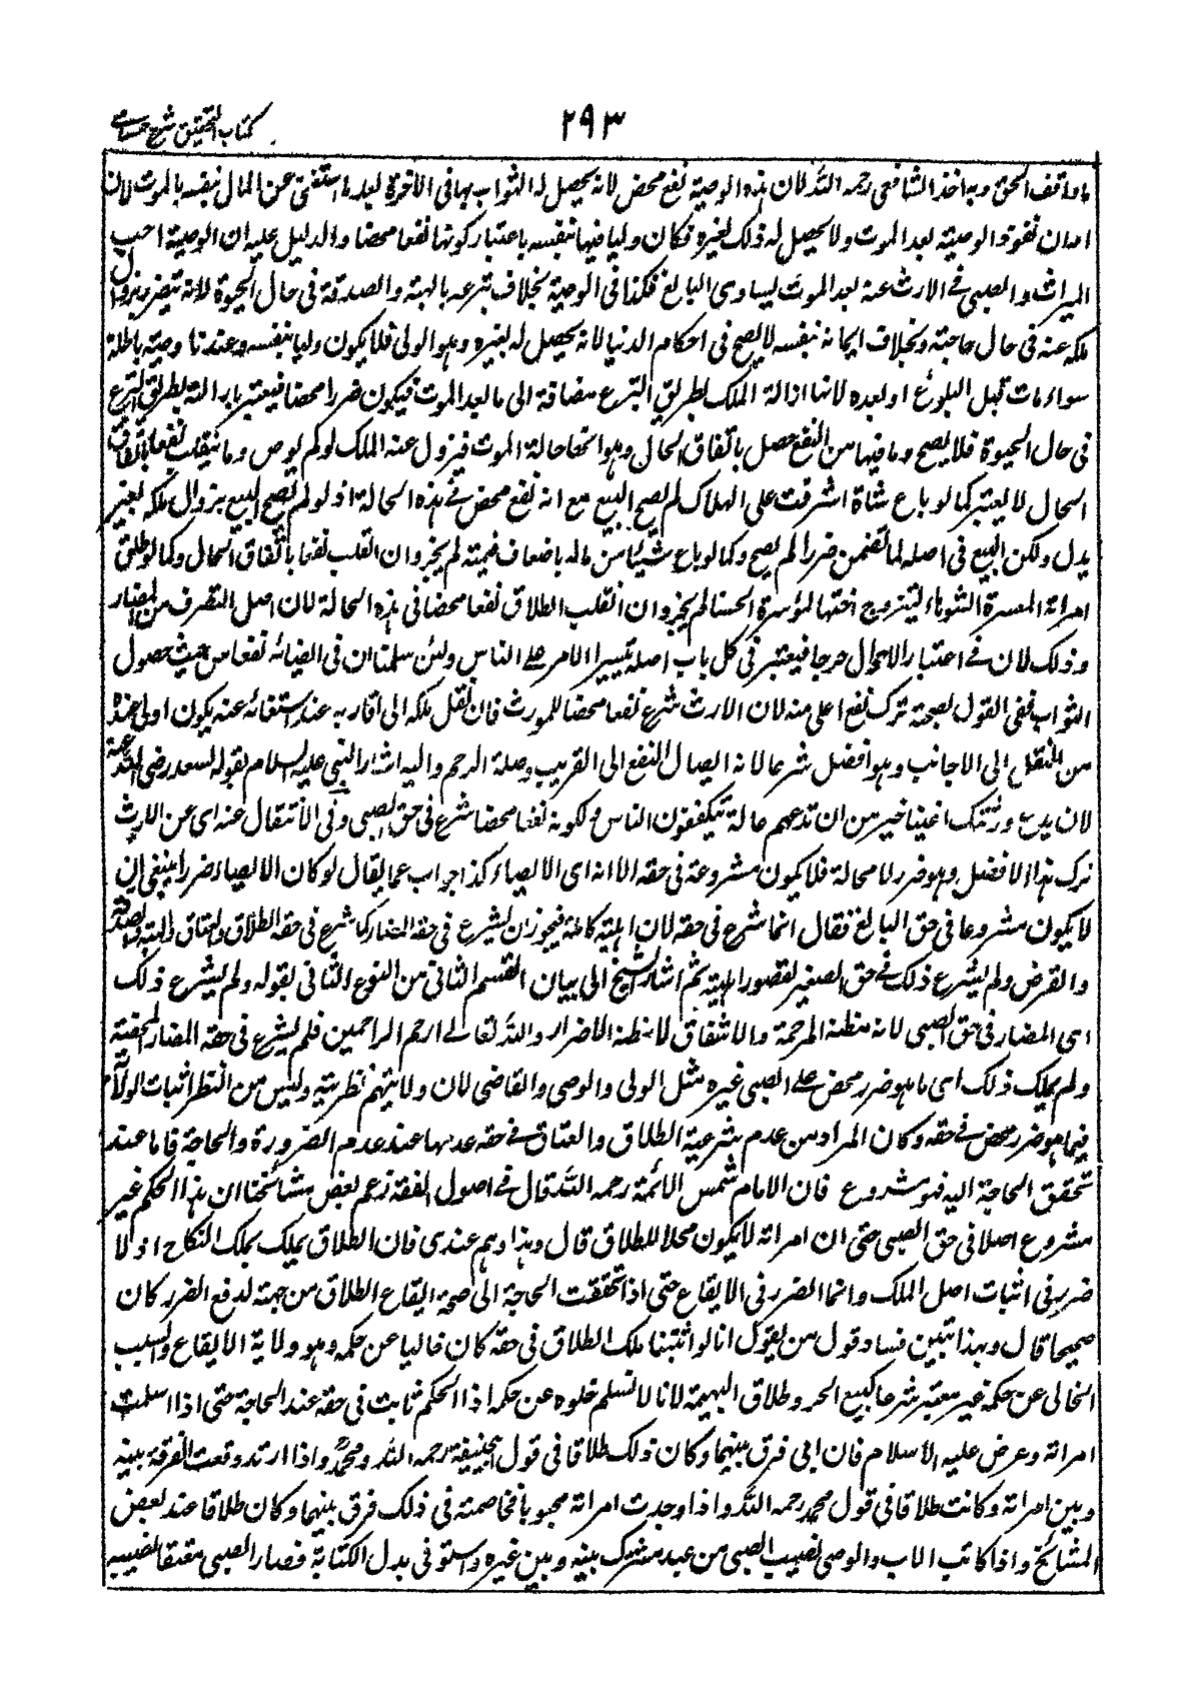 كتاب التحقيق شرح حسامي
٢٩٣
ما وافق الحق وبه اخذ الشافعى رحمه الله لان هذه الوصية نفع محض لانه يحصل له الثواب بها فى الآخرة بعد ما استغنى عن المال بنفسه بالموت لان
اوان نفوذ الوصية بعد الموت ولا يحصل له ذلك بغيره فكان وليا فيها بنفسه باعتبار كونها نفعا محضا والدليل عليه ان الوصية اخت
الميراث والصبى فى الارث عنه بعد الموت يساوى البالغ فكذا فى الوصية بخلاف تبرعه بالهبة والصدقة فى حال الحيوة لانه يتضرر بزوال
ملكه عنه فى حال حاجته وبخلاف ايمانه بنفسه لا يصح فى احكام الدنيا لانه يحصل له بغيره وهو الولى فلا يكون وليا بنفسه وعندنا وصيته باطلة
سواء مات قبل البلوغ او بعده لانها ازالة الملك بطريق التبرع مضافة الى ما بعد الموت فيكون ضررا محضا فيعتبر بازالته بطريق التبرع
فى حال الحيوة فلا يصح وما فيها من النفع حصل باتفاق الحال وهو انها حالة الموت فيزول عنه الملك لو لم يوص وما ينقلب نفعا باتفاق
الحال لا يعتبر كما لو باع شاة اشرفت على الهلاك لم يصح البيع مع انه نفع محض فى هذه الحالة اذ لو لم يصح البيع يزول ملكه بغير
بدل ولكن البيع فى اصله لما تضمن ضررا لم يصح وكما لو باع شيئا من ماله باضعاف قيمته لم يجز وان انقلب نفعا باتفاق الحال وكما لو طلق
امراته المعسرة الشوهاء ليتزوج اختها الموسرة الحسناء لم يجز وان انقلب الطلاق نفعا محضا فى هذه الحالة لان اصل التصرف من المضار
وذلك لان فى اعتبار الاحوال حرجا فيعتبر فى كل باب اصله تيسيرا للامر على الناس ولئن سلمنا ان فى ايصائه نفعا من حيث حصول
الثواب ففى القول بصحته ترك نفع اعلى منه لان الارث شرع نفعا محضا للمورث فان نقل ملكه الى اقاربه عند استغنائه عنه يكون اولى عنده
من النقل الى الاجانب وهو افضل شرعا لانه ايصال النفع الى القريب وصلة الرحم واليه اشار النبى عليه السلام بقوله لسعد رضى الله عنه
لان تدع ورثتك اغنياء خير من ان تدعهم عالة يتكففون الناس ولكونه نفعا محضا شرع فى حق الصبى وفى الانتقال عنه اى عن الارث
ترك هذا الافضل وهو ضرر لا محالة فلا يكون مشروعة فى حقه الا انه اى الايصاء كذا جواب عما يقال لو كان الايصاء ضررا ينبغى ان
لا يكون مشروعا فى حق البالغ فقال انما شرع فى حقه لان اهليته كاملة فيجوز ان يشرع فى حقه المضار كما شرع فى حقه الطلاق والعتاق والهبة والصدقة
والقرض ولم يشرع ذلك فى حق الصغير لقصور اهليته ثم اشار الشيخ الى بيان القسم الثانى من النوع الثانى بقوله ولم يشرع ذلك
اى المضار فى حق الصبى لانه مظنة المرحمة والاشفاق لا مظنة الاضرار والله تعالى ارحم الراحمين فلم يشرع فى حقه المضار المحضة
ولم يملك ذلك اى ما هو ضرر محض على الصبى غيره مثل الولى والوصى والقاضى لان ولايتهم نظرية وليس من النظر اثبات الولاية
فيما هو ضرر محض فى حقه وكان المراد من عدم شرعية الطلاق والعتاق فى حقه عدمها عند عدم الضرورة والحاجة فاما عند
تحقق الحاجة اليه فهو مشروع فان الامام شمس الائمة رحمه الله قال فى اصول الفقه زعم بعض مشائخنا ان هذا الحكم غير
مشروع اصلا فى حق الصبى حتى ان امراته لا يكون محلا للطلاق قال وهذا وهم عندى فان الطلاق يملك بملك النكاح اذ لا
ضرر فى اثبات اصل الملك وانما الضرر فى الايقاع حتى اذا تحققت الحاجة الى صحة ايقاع الطلاق من جهته لدفع الضرر كان
صحيحا قال وبهذا تبين فساد قول من يقول انا لو اثبتنا ملك الطلاق فى حقه كان خاليا عن حكمه وهو ولاية الايقاع والسبب
الخالى عن حكمه غير معتبر شرعا كبيع الحر وطلاق البهيمة لانا لا نسلم خلوه عن حكمه اذا الحكم ثابت فى حقه عند الحاجة حتى اذا اسلمت
امراته وعرض عليه الاسلام فان ابى فرق بينهما وكان ذلك طلاقا فى قول ابى حنيفة رحمه الله ومحمد واذا ارتد وقعت الفرقة بينه
وبين امراته وكانت طلاقا فى قول محمد رحمه الله واذا وجدت امراته مجبوبا فخاصمته فى ذلك فرق بينهما وكان طلاقا عند بعض
المشائخ واذا كاتب الاب والوصى نصيب الصبى من عبد مشترك بينه وبين غيره واستوفى بدل الكتابة فصار الصبى معتقا لنصيبه